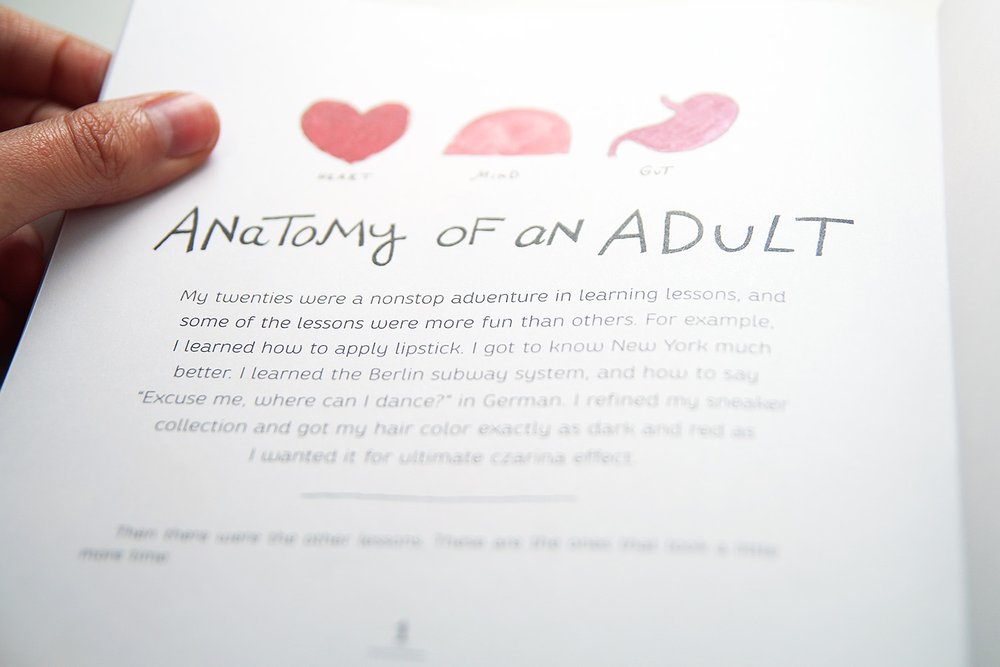 HEART MIND GUT
ANaToMy oF aN ADuLT
My twenties were a nonstop adventure in learning lessons, and
some of the lessons were more fun than others. For example,
I learned how to apply lipstick. I got to know New York much
better. I learned the Berlin subway system, and how to say
“Excuse me, where can I dance?” in German. I refined my sneaker
collection and got my hair color exactly as dark and red as
I wanted it for ultimate czarina effect.
Then there were the other lessons. These are the ones that took a little
more time.